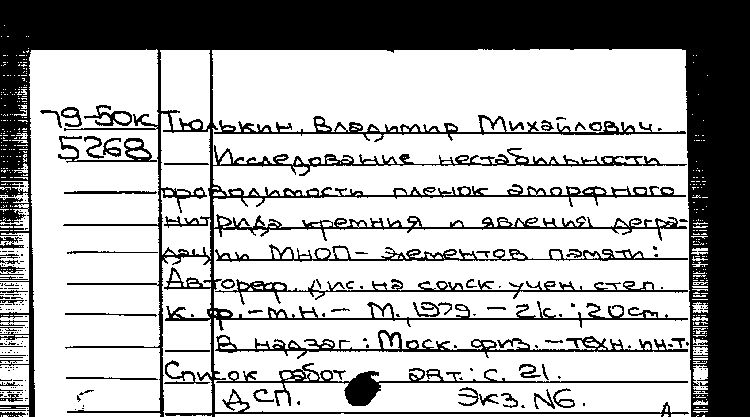 79-50к Тюлькин, Владимир Михайлович.
5268 Исследование нестабильности
проводимости пленок аморфного
нитрида кремния и явления дегра-
дации МНОП-элементов памяти:
Автореф. дис. на соиск. учен. степ.
к. ф.-м.н. - М., 1979. - 21с.; 20см.
В надзаг.: Моск. физ.-техн. ин-т.
Список работ авт.: с. 21.
ДСП. Экз. №6.